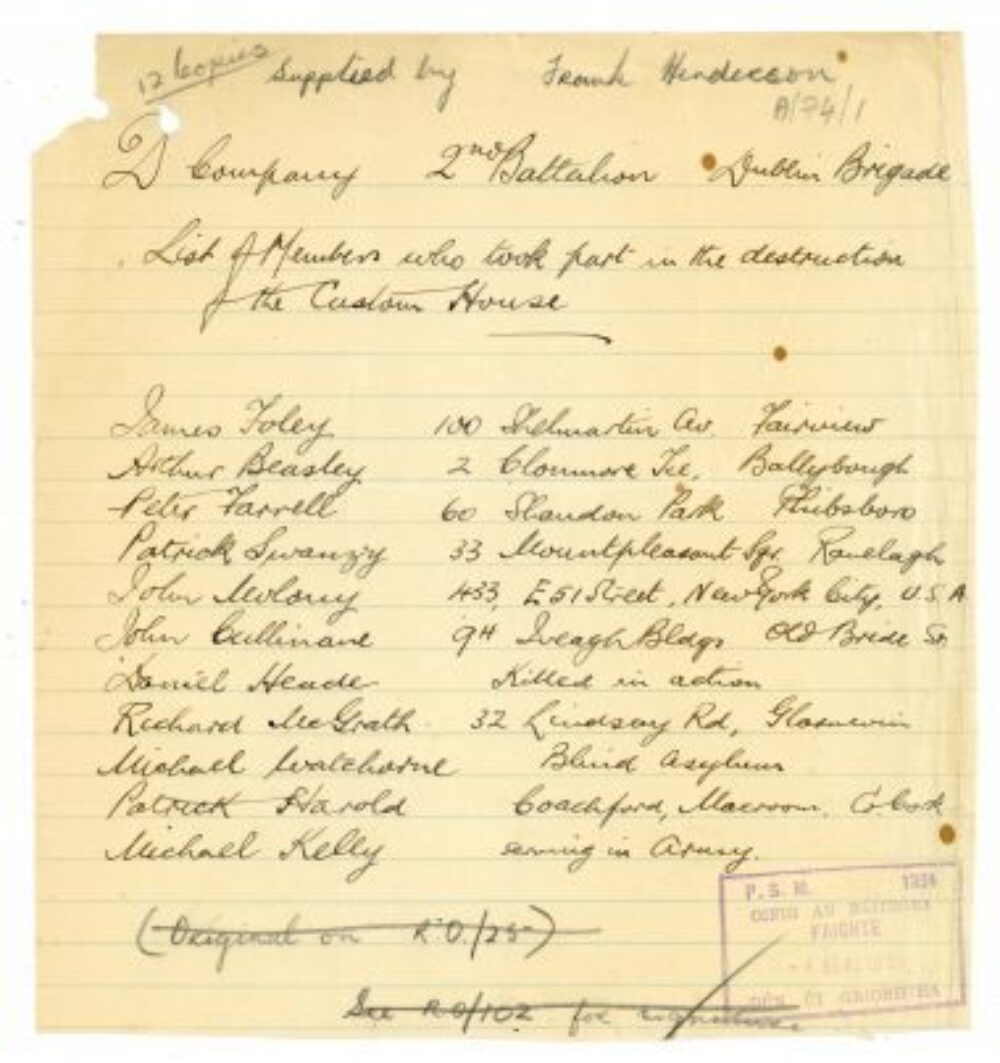 12 Copies Supplied by Frank Henderson
A/74/1
D Company 2nd Battalion Dublin Brigade
List of Members who took part in the destruction
of the Custom House
James Foley 100 Shelmartin Av. Fairview
Arthur Beasley 2 Clonmore Tce, Ballybough
Peter Farrell 60 Shandon Park Phibsboro
Patrick Swanzy 33 Mountpleasant Sqr. Ranelagh
John Molony 433, E 51 Street, New York City, U.S.A
John Cullinane 94 Iveagh Bldgs Old Bride St.
Daniel Heade Killed in action
Richard McGrath 32 Lindsay Rd, Glasnevin
Michael Watchorne Blind Asylum
Patrick Harold Coachford, Macroom. Co. Cork
Michael Kelly serving in Army.
(Original on R.O./25)
See R.O/102 for signature.
P. S. M. 1934